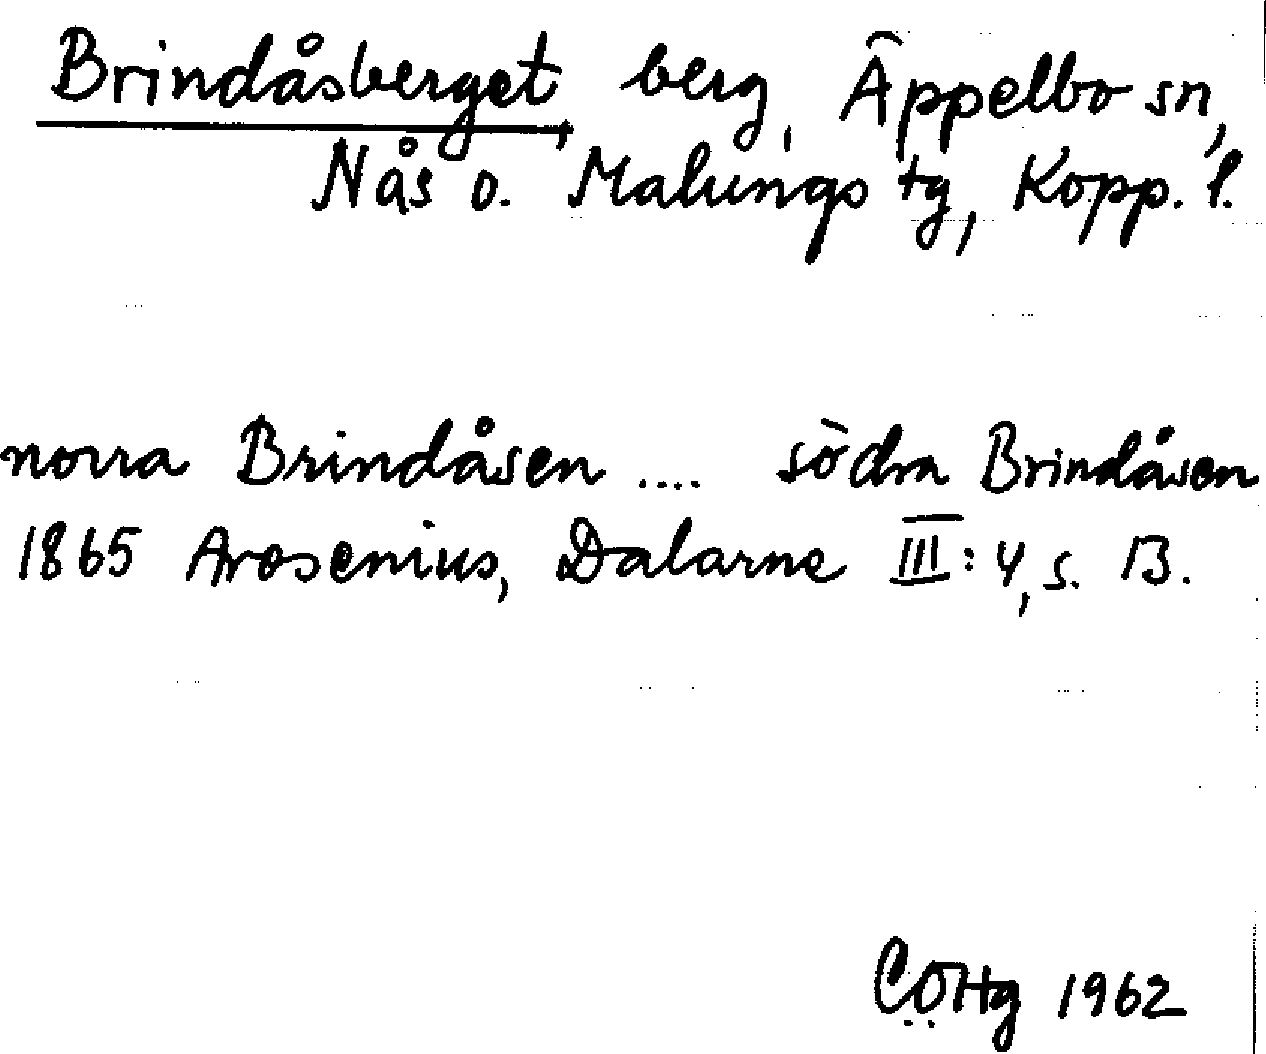 Brindåsberget, berg, Äppelbo sn,
Nås o. Malungs tg, Kopp. l.
norra Brindåsen .... södra Brindåsen
1865 Arosenius, Dalarne III: 4, s. 13.
CÖHg 1962